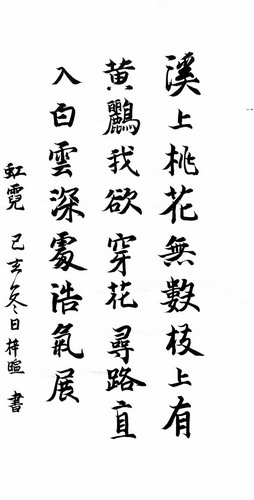 溪上桃花無數枝上有
黄鸝我欲穿花尋路直
入白雲深處浩氣展
虹霓 己亥冬日梓暄書